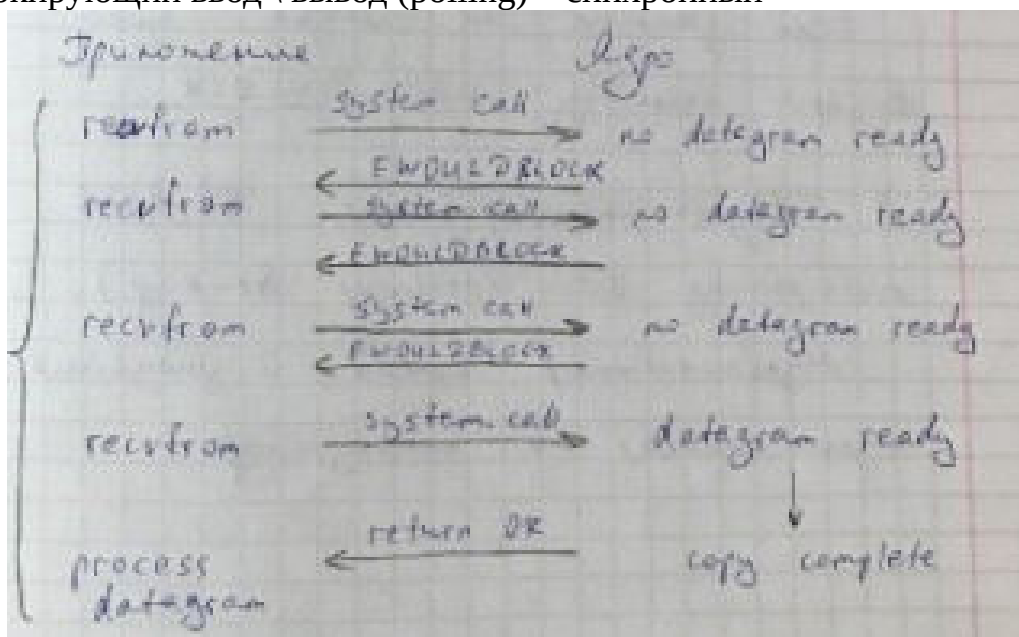 кирующий ввод \ вывод (polling) – синхронный
Приложение Ядро
recvfrom system call no datagram ready
EWOULDBLOCK
recvfrom system call no datagram ready
EWOULDBLOCK
recvfrom system call no datagram ready
EWOULDBLOCK
recvfrom system call datagram ready
process return OK copy complete
datagram